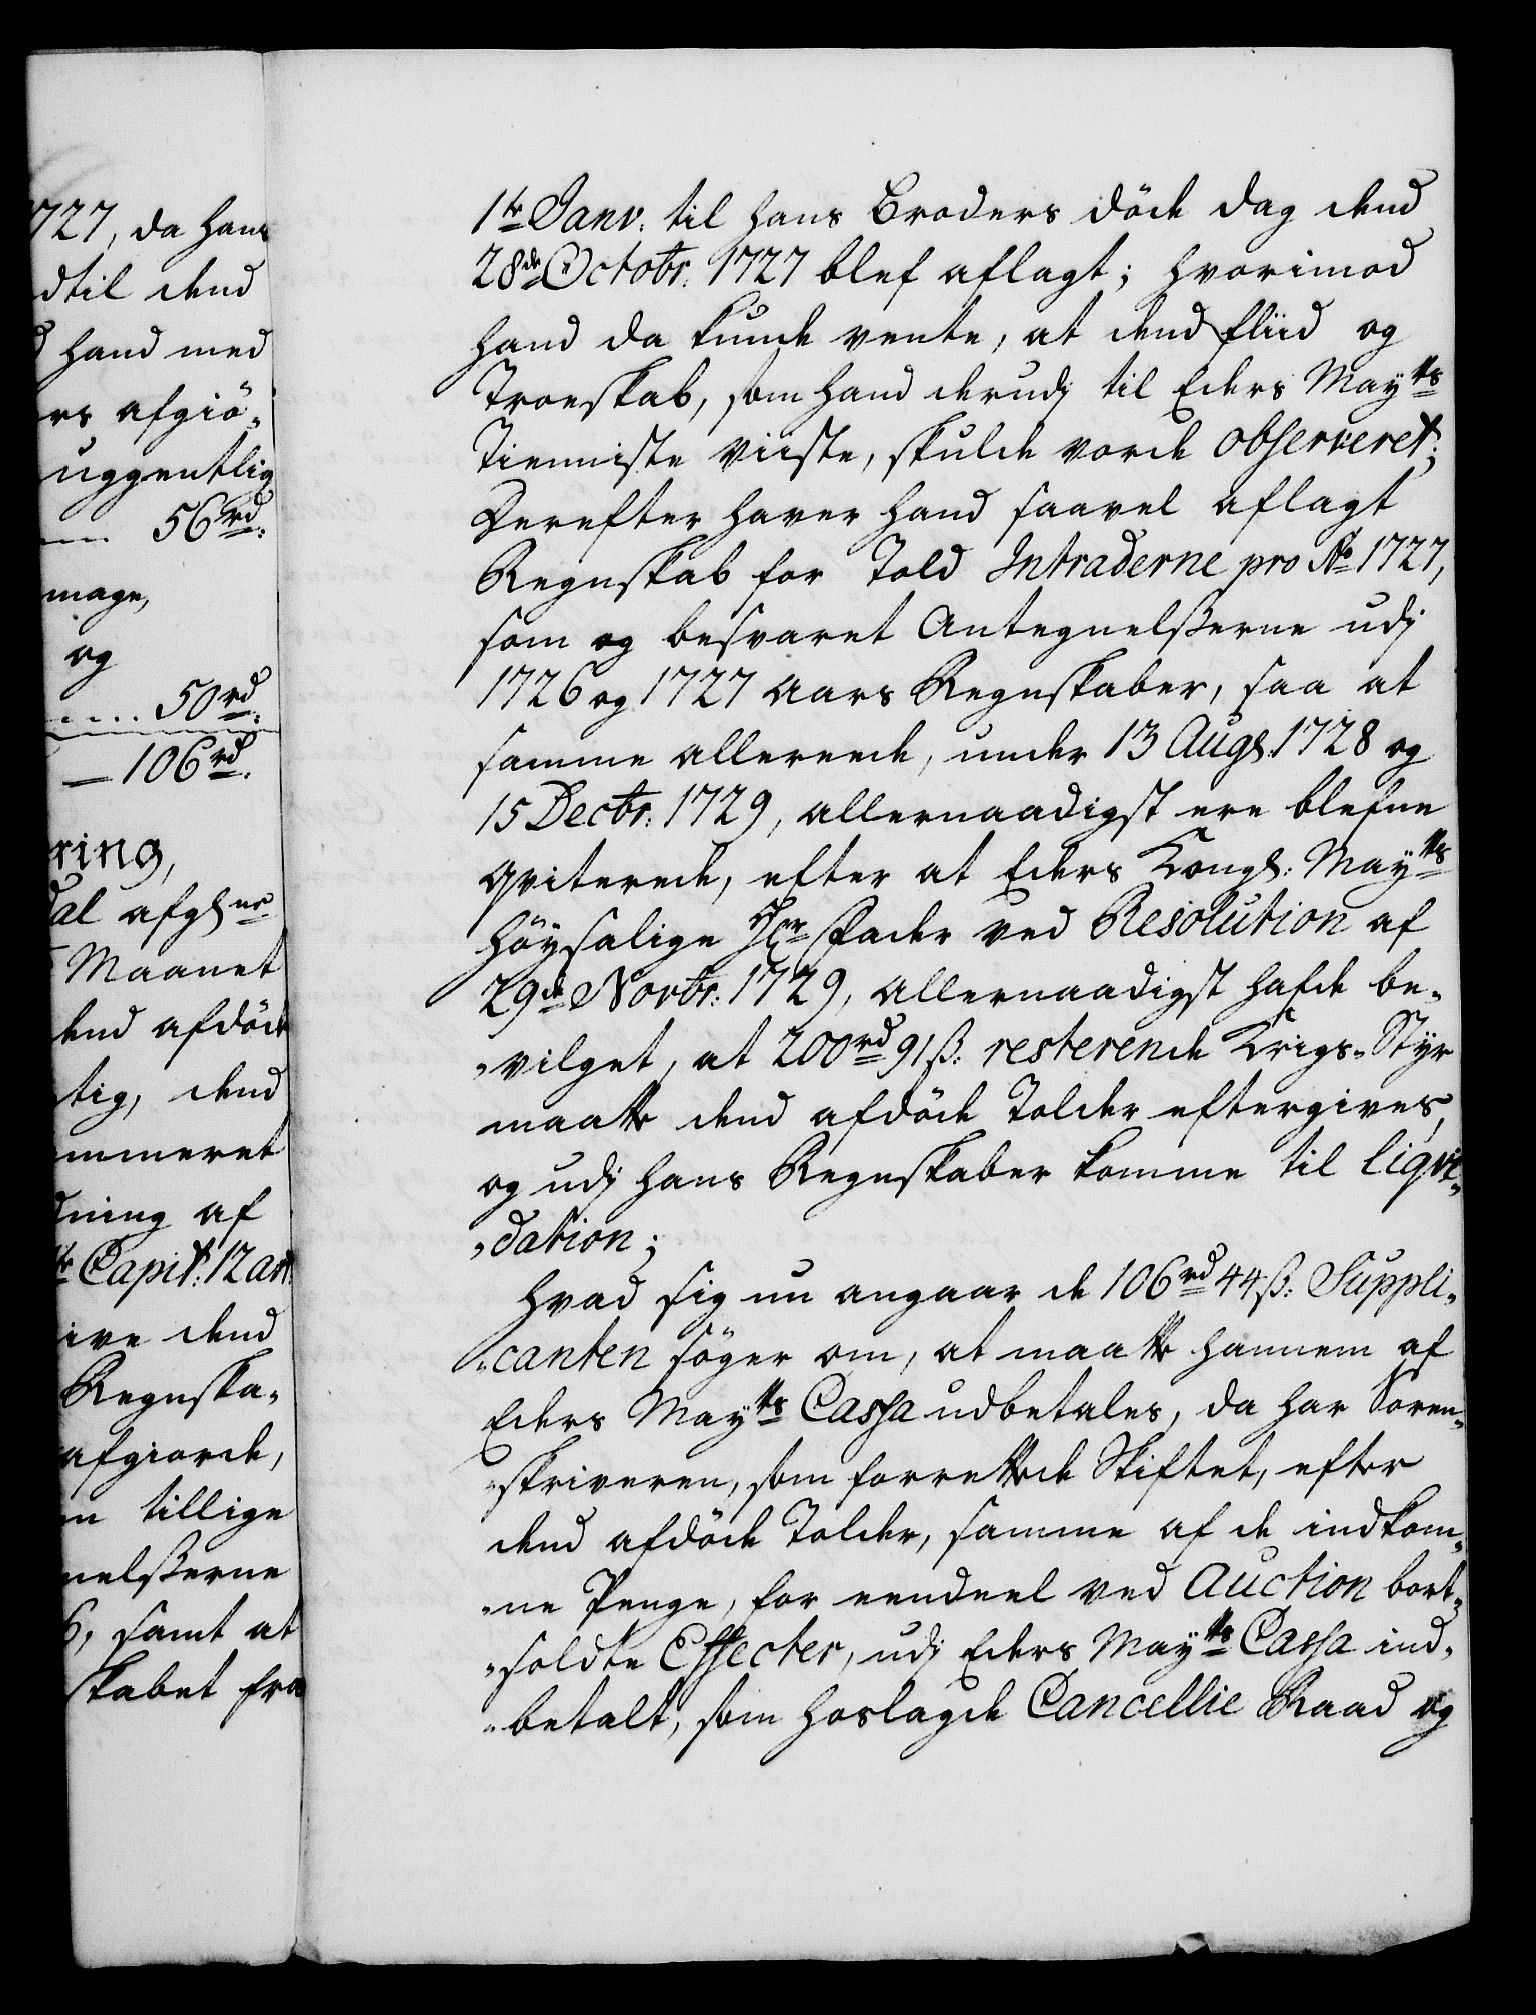 727, da hans
dtil dend
d hand med
rs afgiö„
uggentlig
56rd:
mage,
og
50rd:
106rd.
ring,
dal afgℓne
Maanet
dend afdöde
tig, dend
ummeret
dning af
te Capit: 12 art:
ive dend
Regnska„
afgiorde,
en tillige
nelßerne
6, samt at
skabet fra
1te Janv: til hans Broders döde dag dend
28de Octobr: 1727 blef aflagt; hvorimod
hand da kunde vente, at dend fliid og
Troeskab, som hand derudj til Eders Maytts
Tienniste viiste, skulde vorde observeret;
Derefter haver hand saavel aflagt
Regnskab for Told Intraderne pro Ao 1727,
som og besvaret Antegnelßerne udj
1726 og 1727 Aars Regnskaber, saa at
samme allereede, under 13 Augs. 1728 og
15 Decbr: 1729, allernaadigst ere blefne
qviterede, efter at Eders Kongl: Maytts
höysalige Hr Fader ved Resolution af
29de Novbr: 1729, allernaadigst hafde be„
„vilget, at 200rd 91ß: resterende Krigs„Styr
maatte dend afdöde Tolder eftergives,
og udj hans Regnskaber komme til liqvi„
„dation;
Hvad sig nu angaar de 106rd 44ß: Suppli„
„canten söger om, at maatte hannem af
Eders Maytts Cassa udbetales, da har Soren„
„skriveren, som forrettede Skiftet, efter
dend afdöde Tolder, samme af de indkom„
„ne Penge, for eendeel ved Auction bort„
„soldte Effecter, udj Eders Maytts Cassa ind„
„betalt, som hoslagde Cancellie Raad og